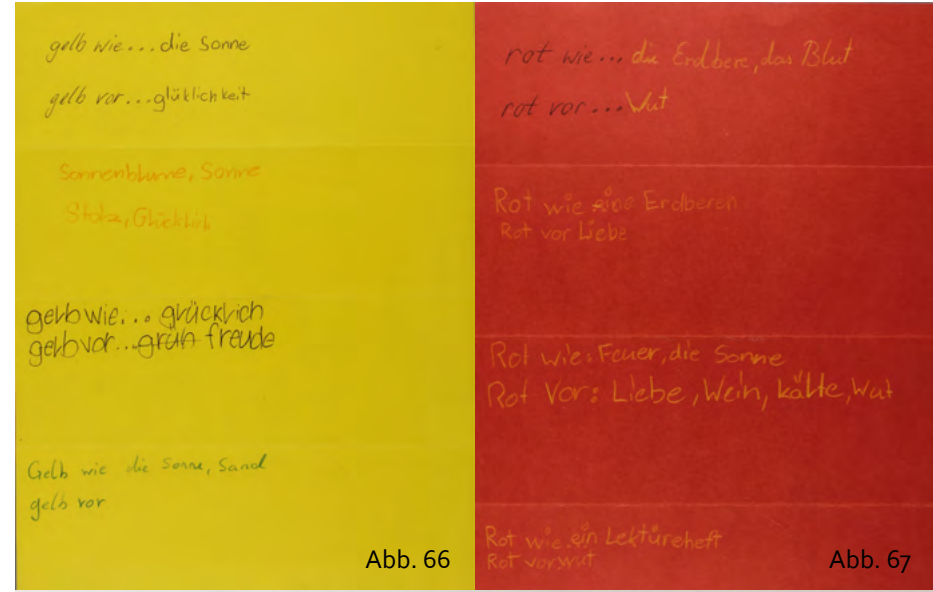 gelb wie...die Sonne
gelb vor...glüklichkeit
Sonnenblume, Sonne
Stolz, Glücklich
gelb wie... glücklich
gelb vor...grün freude
Gelb wie die Sonne, Sand
gelb vor
Abb. 66
rot wie... die Erdbere, das Blut
rot vor... Wut
Rot wie eine Erdberen
Rot vor Liebe
Rot wie: Feuer, die Sonne
Rot Vor: Liebe, Wein, kälte, Wut
Rot wie ein Lektüreheft
Rot vor wut
Abb. 67